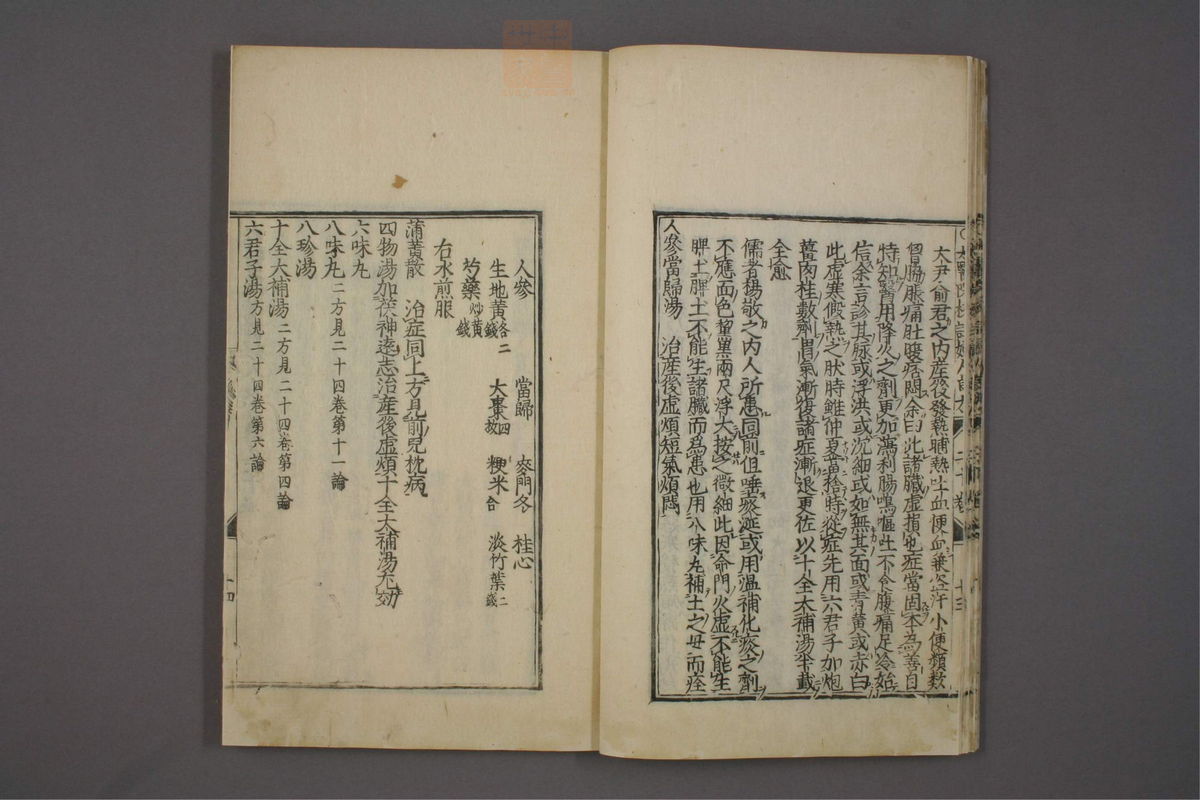 大尹俞君之内産後發熱晡熱吐血便血兼盜汗小便頻数
胷脇脹痛肚腹痞悶余曰此諸臓虚損也症當固本為善自
特知醫用降火之劑更加瀉利腸鳴嘔吐不食腹痛足冷始
信余言診其脉或浮洪或沉細或如無其面或青黄或赤白
此虚寒假熱之状時雖仲夏當捨時從症先用六君子加炮
薑肉桂数劑胃氣漸復諸症漸退更佐以十全大補湯半載
全愈
儒者楊敬之内人所患同前但唾痰涎或用温補化痰之劑
不應面色黧黒兩尺浮大按之微細此因命門火虚不能生
脾土脾土不能生諸臟而為患也用八味丸補土之母而痊
人參當歸湯　治産後虚煩短氣煩悶
人參　當歸　麥門冬　桂心
生地黄各二錢　大棗四枚　粳米一合　淡竹葉二錢
芍藥炒黄錢
右水煎服
蒲黄散　治症同上方見前兒枕病
四物湯加茯神遠志治産後虚煩十全大補湯尤効
六味丸
八味丸二方見二十四卷第十一論
八珍湯
十全大補湯二方見二十四卷第四論
六君子湯方見二十四卷第六論